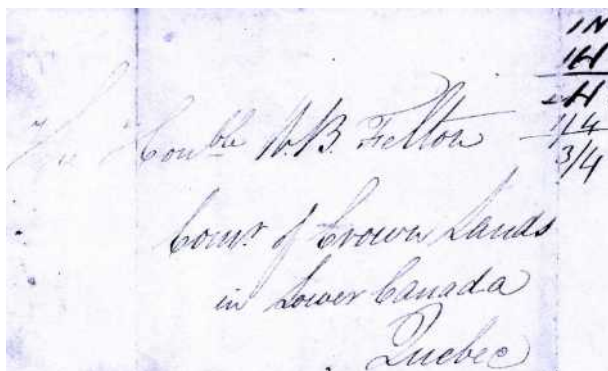 1N
The Honble W. B. Felton
Comr. of Crown Lands
in Lower Canada
Quebec
1/4
3/4